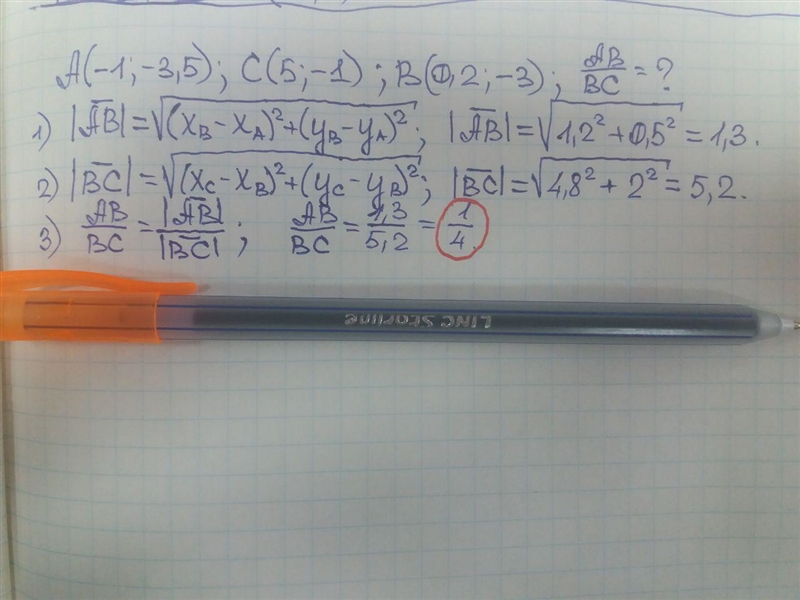 A(-1; -3,5); C(5; -1); B(0,2; -3); AB/BC = ?
1) |AB| = √((x_B - x_A)² + (y_B - y_A)²); |AB| = √(1,2² + 0,5²) = 1,3.
2) |BC| = √((x_C - x_B)² + (y_C - y_B)²); |BC| = √(4,8² + 2²) = 5,2.
3) AB/BC = |AB|/|BC|; AB/BC = 1,3/5,2 = 1/4.
LINC Starline